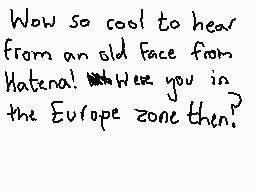 Wow so cool to hear
from an old face from
Hatena! Were you in
the Europe zone then?